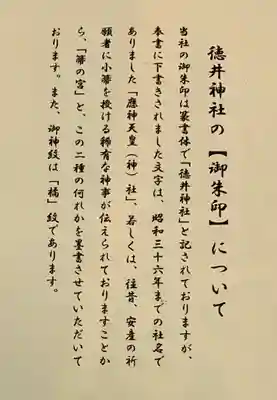 徳井神社の【御朱印】について
当社の御朱印は篆書体で「徳井神社」と記されておりますが、
奉書に下書きされました文字は、昭和三十六年までの社名で
ありました「應神天皇(神)社」、若しくは、往昔、安産の祈
願者に小箒を授ける稀有な神事が伝えられておりますことか
ら、「箒の宮」と、この二種の何れかを墨書させていただいて
おります。また、御神紋は「橘」紋であります。